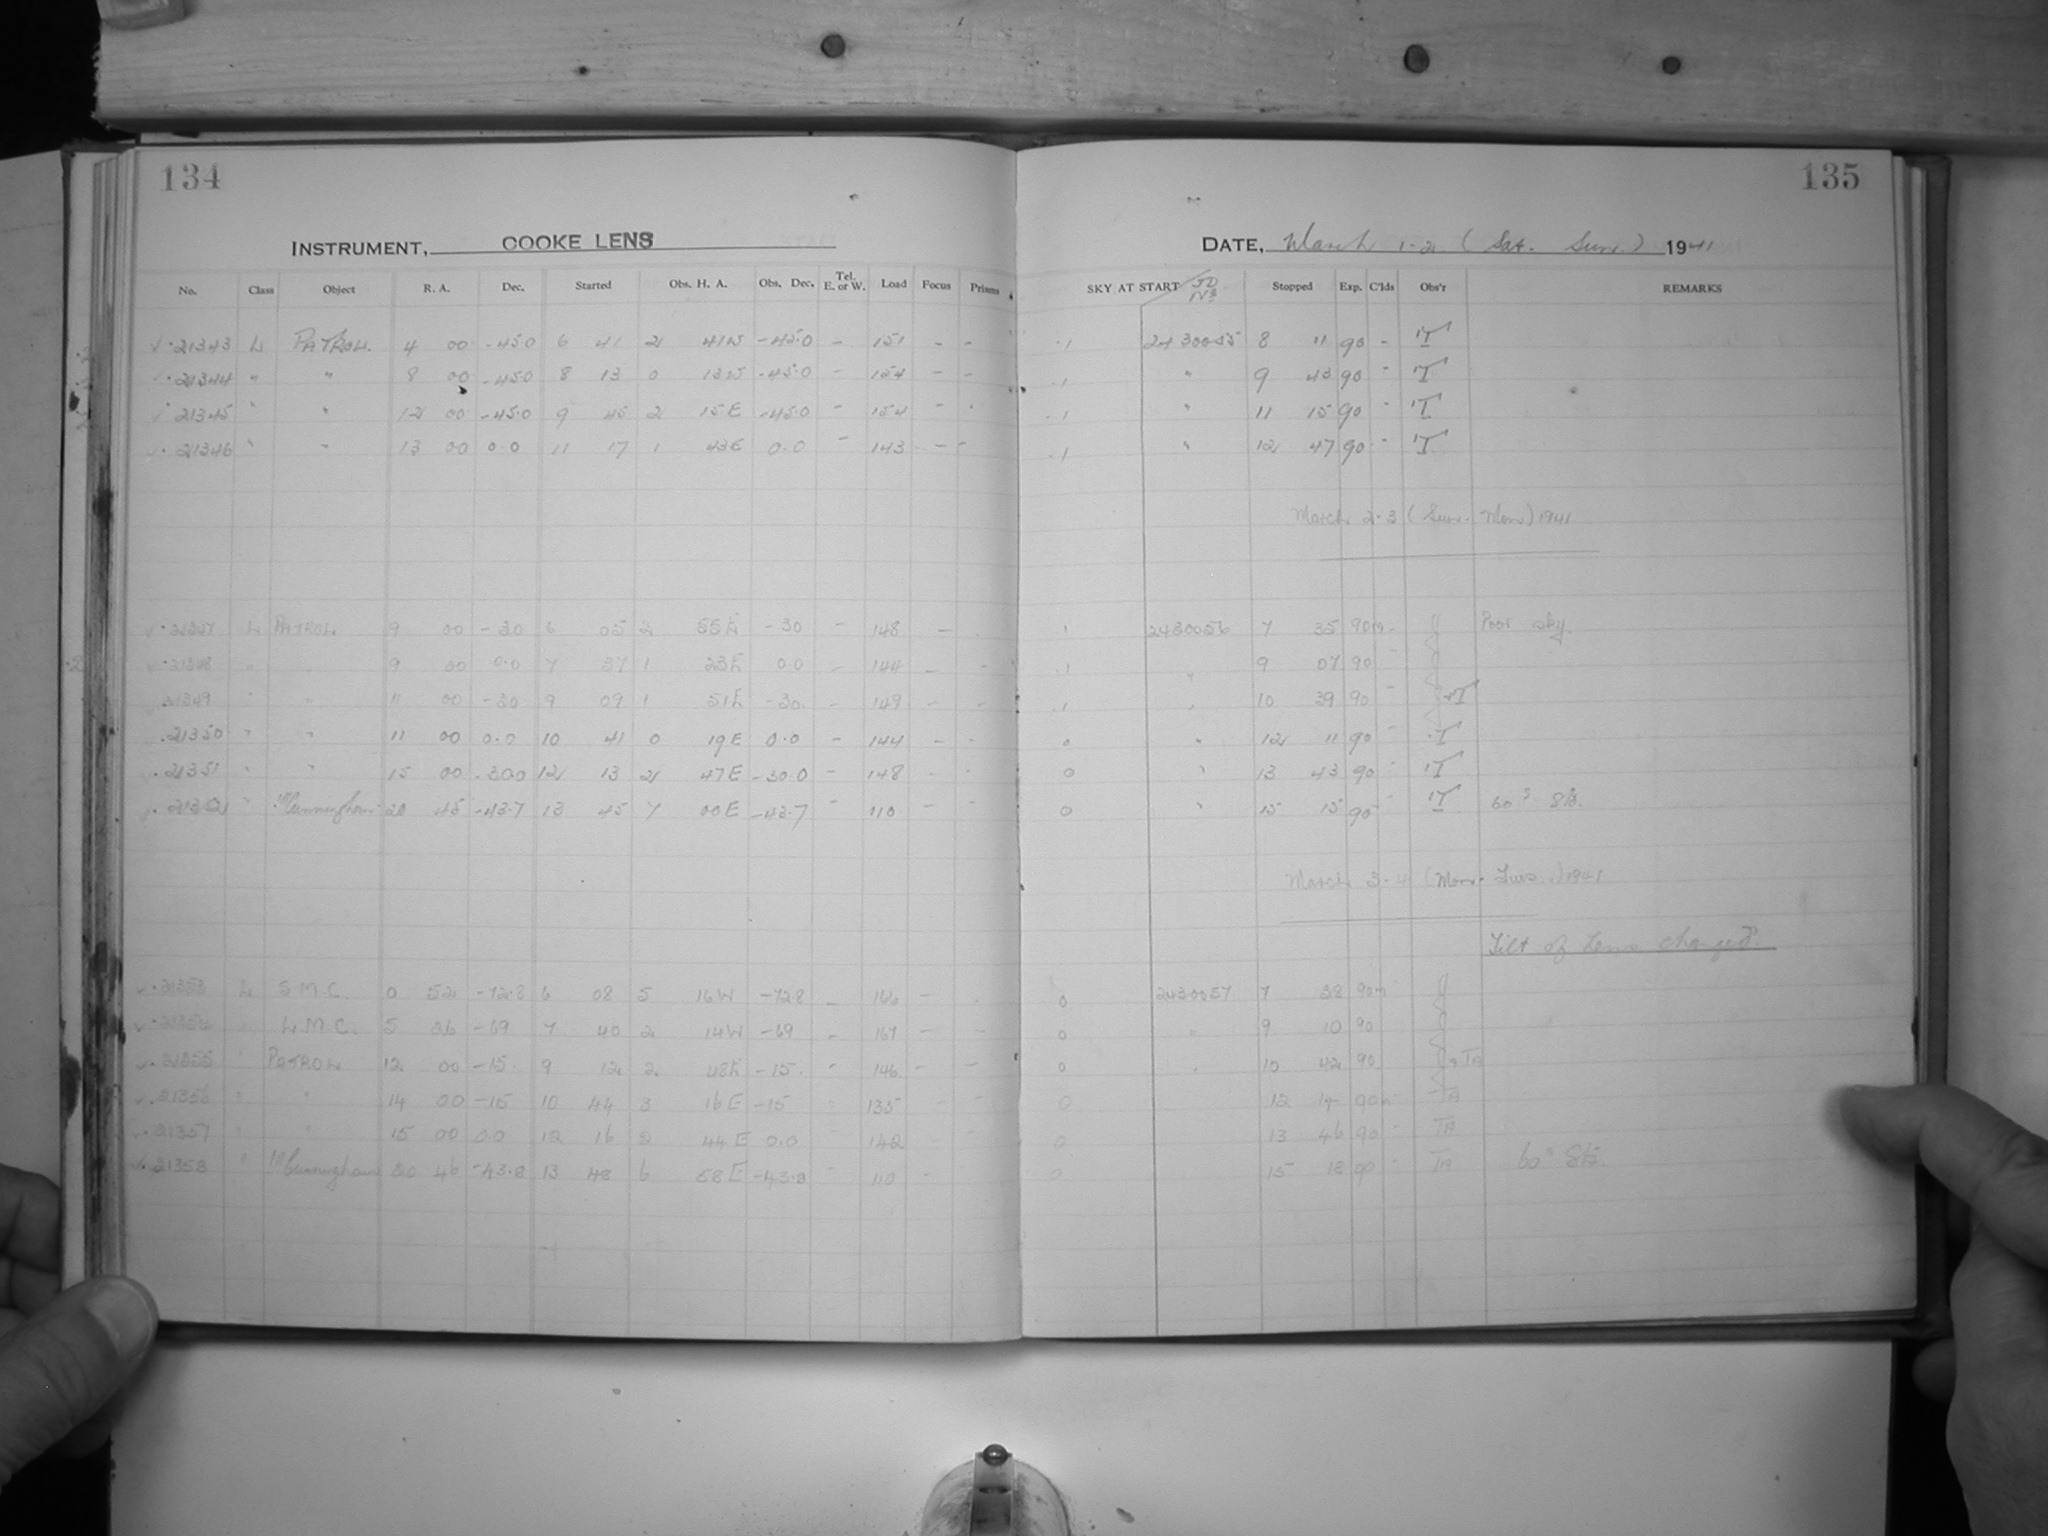 134
135
INSTRUMENT, COOKE LENS
DATE, March 1-2 (Sat. Sun.) 1941
No. Class Object R. A. Dec. Started Obs. H. A. Obs. Dec. Tel. E. or W. Load Focus Prisms SKY AT START JD Stopped Exp. C'lds Obs'r REMARKS
21343 L PATROL. 4 00 -45.0 6 41 2 41W -45.0 - 151 - - .1 2430055 8 11 90 - T
21344 " " 8 00 -45.0 8 13 0 13W -45.0 - 154 - - .1 " 9 43 90 - T
21345 " " 12 00 -45.0 9 45 2 15E -45.0 - 154 - - .1 " 11 15 90 - T
21346 " " 13 00 0.0 11 17 1 43E 0.0 - 143 - - .1 " 12 47 90 - T
March 2-3 (Sun. Mon) 1941
21347 L PATROL 9 00 -30 6 05 2 55E -30 - 148 - 1 2430056 7 35 90m - Poor sky.
21348 " " 9 00 0.0 7 37 1 23E 0.0 - 144 - - .1 " 9 07 90 -
21349 " " 11 00 -30 9 09 1 51E -30. - 149 - - .1 " 10 39 90 - T
21350 " " 11 00 0.0 10 41 0 19E 0.0 - 144 - - 0 " 12 11 90 - T
21351 " " 15 00 -30.0 12 13 2 47E -30.0 - 148 - - 0 " 13 43 90 - T
" Cunningham 20 45 -43.7 13 45 7 00E -43.7 - 110 - - 0 " 15 15 90 - T 60
March 3-4 (Mon. Tues.) 1941
Tilt of Lens changed.
21353 L S.M.C. 0 52 -72.8 6 08 5 16W -72.8 - 166 - 0 2430057 7 38 90m
21354 L.M.C. 5 26 -69 7 40 2 14W -69 - 167 - - 0 " 9 10 90
21355 " PATROL 12 00 -15. 9 12 2 48E -15. - 146 - - 0 " 10 42 90 TA
21356 " " 14 00 -15 10 44 3 16E -15 135 - - 0 12 14 90m TA
21357 " " 15 00 0.0 12 16 2 44E 0.0 - 142 0 13 46 90 - TA
21358 " Cunningham 20 46 -43.8 13 48 6 58E -43.8 - 110 - 0 15 18 90 - TA 60